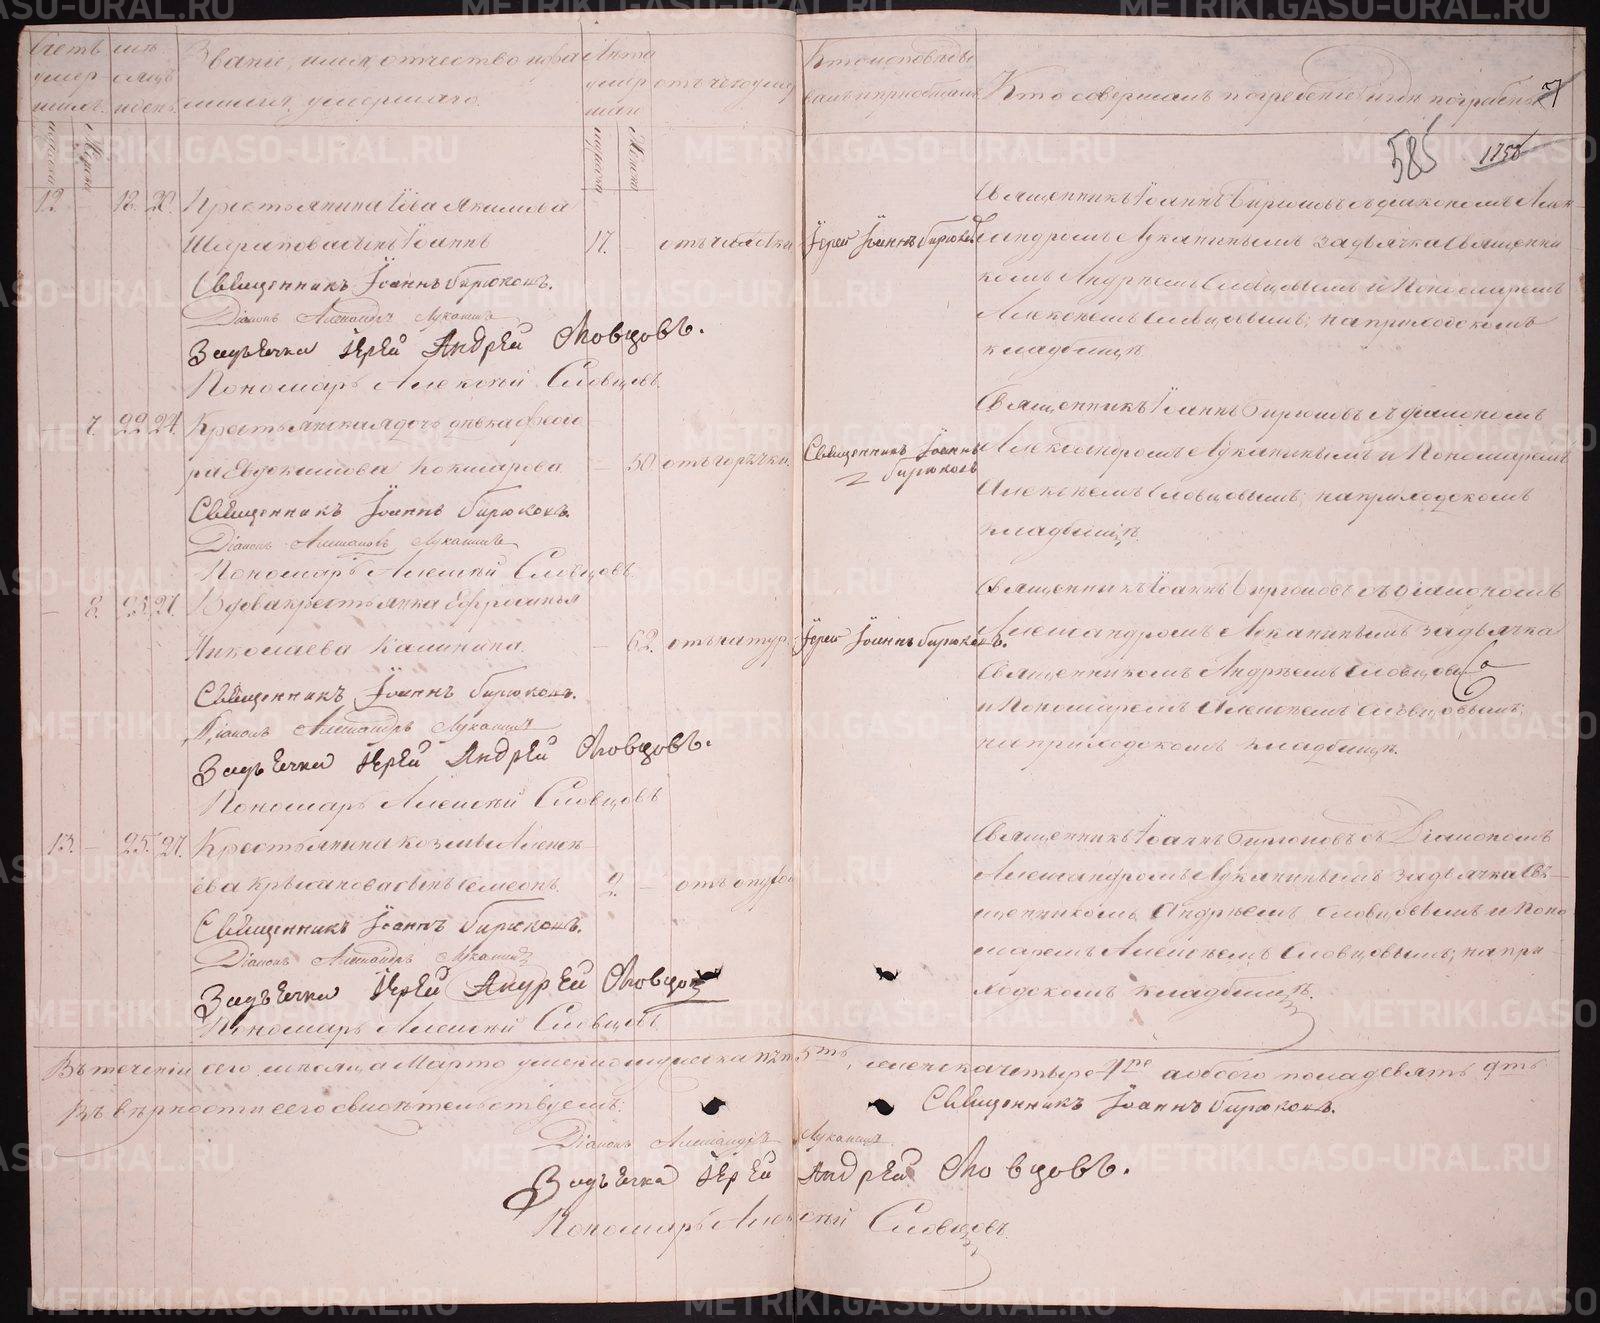 Счетъ умер шихъ
Мѣсяцъ и день
Званіе, имя, отчество и фамилія умершаго.
Лѣта умер шаго
отъ чего умеръ
Кто исповѣды валъ и пріобщалъ
Кто совершалъ погребеніе и гдѣ погребены
7
585
1758
12. 18. 20. Крестьянина Іова Якимова
Шарапова сынъ Іоаннъ 17. отъ чахотки
Священникъ Іоаннъ Бирюковъ.
Діаконъ Александръ Луканинъ
За дьячка Іерей Андрей Словцовъ.
Пономарь Алексѣй Словцовъ
Іерей Іоаннъ Бирюковъ
Священникъ Іоаннъ Бирюковъ съ діакономъ Алек-
сандромъ Луканинымъ за дьячка Священни
комъ Андреемъ Словцовымъ и Пономаремъ
Алексѣемъ Словцовымъ; на приходскомъ
кладбищѣ
— 7. 22. 24. Крестьянская дочь дѣвка
Евдокимова 50 отъ горячки.
Священникъ Іоаннъ Бирюковъ.
Діаконъ Александръ Луканинъ
Пономарь Алексѣй Словцовъ
Священникъ Іоаннъ
Бирюковъ
Священникъ Іоаннъ Бирюковъ съ діакономъ
Александромъ Луканинымъ и Пономаремъ
Алексѣемъ Словцовымъ; на приходскомъ
кладбищѣ.
— 8. 25. 27. Вдова крестьянка Ефросинья
Николаева Калинина. — 62. отъ натур.
Священникъ Іоаннъ Бирюковъ.
Діаконъ Александръ Луканинъ
За дьячка Іерей Андрей Словцовъ.
Пономарь Алексѣй Словцовъ
Іерей Іоаннъ Бирюковъ.
Священникъ Іоаннъ Бирюковъ съ діакономъ
Александромъ Луканинымъ за дьячка
Священникомъ Андреемъ Словцовы
и Пономаремъ Алексѣемъ Словцовымъ;
на приходскомъ кладбищѣ.
13. — 25. 27. Крестьянина Козмы Алексѣ
ева сынъ Симеонъ. 2 — отъ
Священникъ Іоаннъ Бирюковъ.
Діаконъ Александръ Луканинъ
За дьячка Іерей Андрей Словцов
Пономарь Алексѣй Словцовъ
Священникъ Іоаннъ Бирюковъ съ Діакономъ
Александромъ Луканинымъ за дьячка Свя-
щенникомъ Андреемъ Словцовымъ и Поно
маремъ Алексѣемъ Словцовымъ; на при
ходскомъ кладбищѣ.
Въ теченіи сего мѣсяца Марта умерло мужеска пять 5ть, женска четыре 4ре а обоего пола девять 9ть
Въ вѣрности сего свидѣтельствуемъ:
Священникъ Іоаннъ Бирюковъ.
Діаконъ Александръ Луканинъ.
За дьячка Іерей Андрей Словцовъ.
Пономарь Алексѣй Словцовъ.
METRIKI.GASO-URAL.RU